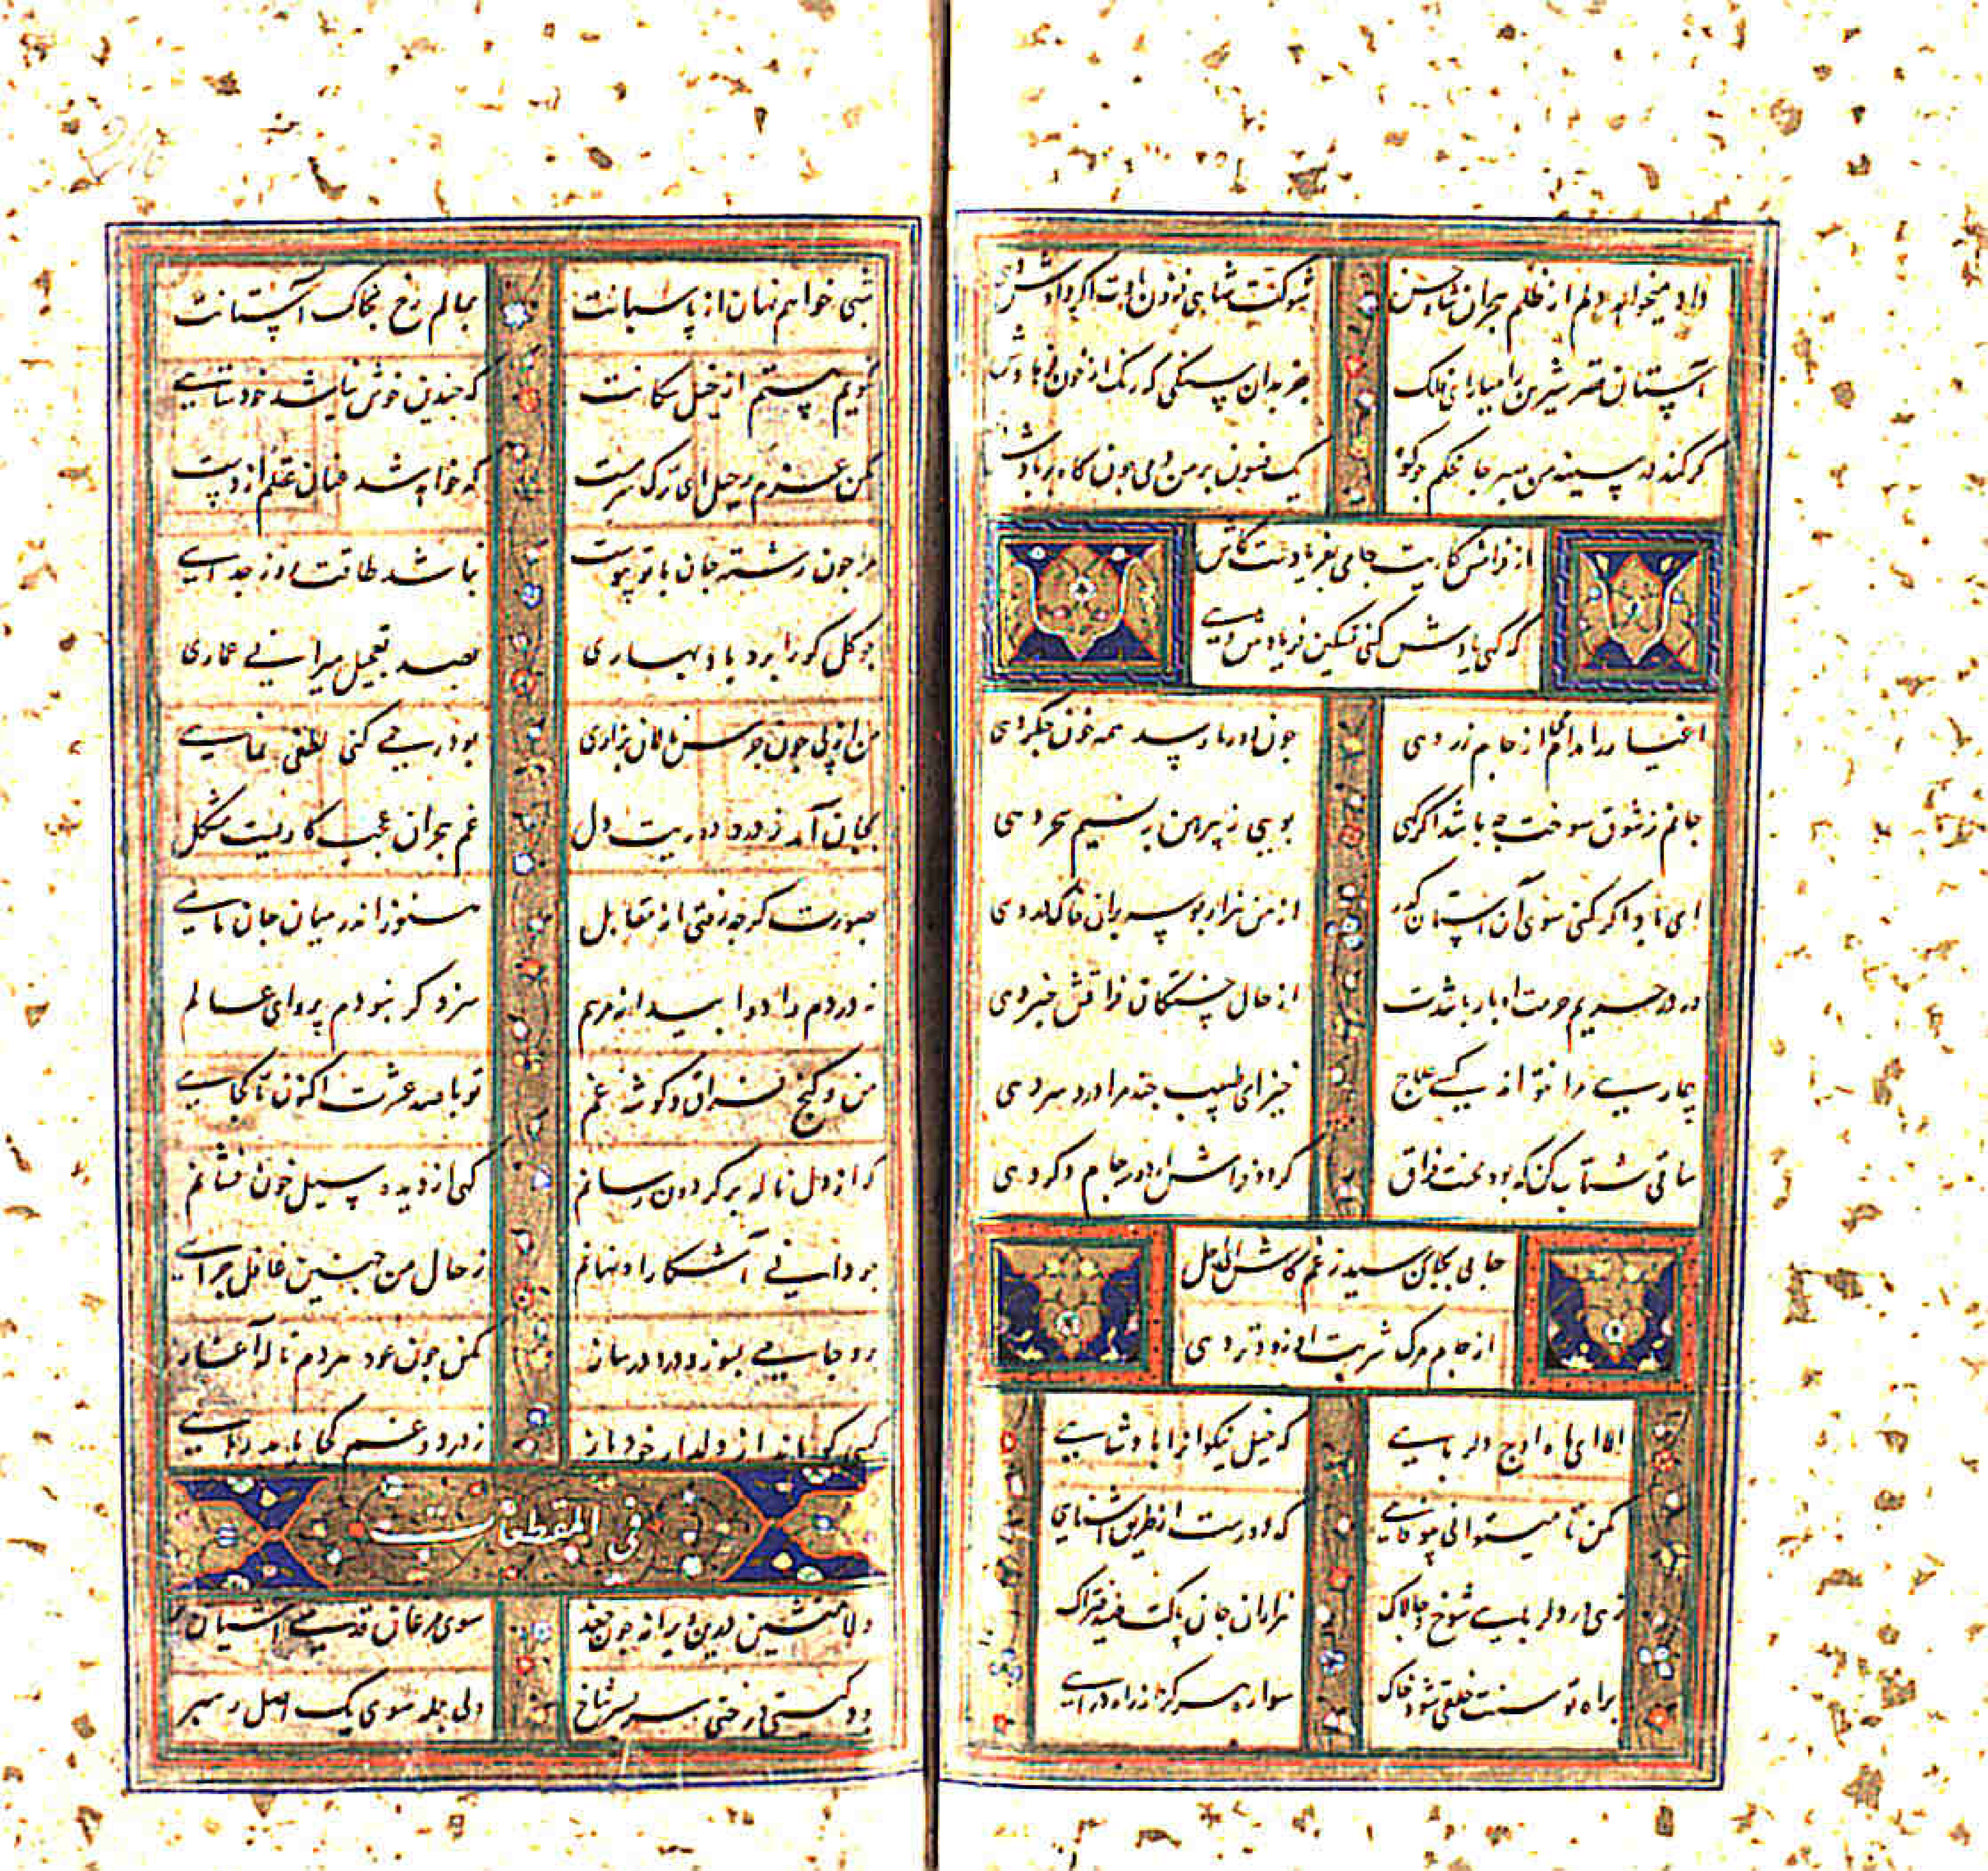 داد میخواهد دلم از ظلم هجران شاه حسن
شوکت شاهی فزون بادت اگر دادش دهی
آستان قصر شیرین را میارای فلک
جز بدان سنگی که رنگ از خون فرهادش دهی
گر کند در سینه من صبر جا محکم چو کوه
یک فسون بر من دمی چون کاه بر بادش دهی
از فراقش کار تست جامی فریادت
که گهی یادش کنی تسکین فریادش دهی
اغیار را مدام می از جام زر دهی
چون دور ما رسد همه خون جگر دهی
جانم ز شوق سوخت چه باشد اگر گهی
بویی ز پیرهن به نسیم سحر دهی
ای باد اگر کنی سوی آن آستان گذر
از من هزار بوسه بران خاک در دهی
ور در حریم حرمت او بار باشدت
از حال خستگان فراقش خبر دهی
بیماریی مرا نتواند کسی علاج
خیز ای طبیب چند مرا درد سر دهی
ساقی شتاب کن که بود محنت فراق
گر دور از لبش دو سه جام دگر دهی
جامی بجان رسید ز غم کاش ای اجل
از جام مرگ شربت او زودتر دهی
الا ای ماه اوج دلربایی
که خیل نیکوانرا پادشایی
مکن تا میتوانی بیوفایی
که دورست از طریق آشنایی
زهی در دلربایی شوخ و چالاک
هزاران جان پاکت صید فتراک
براه تو سنت خلقی شود خاک
سواره هر گه از راه درآیی
شبی خواهم نهان از پاسبانت
بمالم رخ بخاک آستانت
نگویم هستم از خیل سگانت
که چندین خوش نباشد خودستایی
مکن عزم رحیل ای ترک سرمست
که خواهد شد عنان عقلم از دست
مرا چون رشته جان با تو پیوست
نباشد طاقت روز جدایی
چو گل کورا برد باد بهاری
بصد تعجیل میرانی عماری
من از پی چون جرس نالان بزاری
بود رحمی کنی لطفی نمایی
بجان آمد ز درد دوریت دل
غم هجران عجب کاریست مشکل
بصورت گرچه رفتی از مقابل
هنوز اندر میان جان مایی
نه دردم را دوا پیدا نه مرهم
سزد گر نبودم پروای عالم
من و کنج فراق و گوشه غم
تو با صد عشرت اکنون تا کجایی
گه از دل ناله بر گردون رسانم
گهی از دیده سیل خون فشانم
چو دانی آشکارا و نهانم
ز حال من چنین غافل چرایی
برو جامی بسوز و درد در ساز
مکن چون عود هر دم ناله آغاز
کسی کو ماند از دلدار خود باز
ز درد و غم کجا یابد رهایی
فی المقطعات
دلا منشین درین ویرانه چون جغد
سوی مرغان قدسی آشیان
دو گیتی درختی سر بسر شاخ
ولی جمله سوی یک اصل رهبر